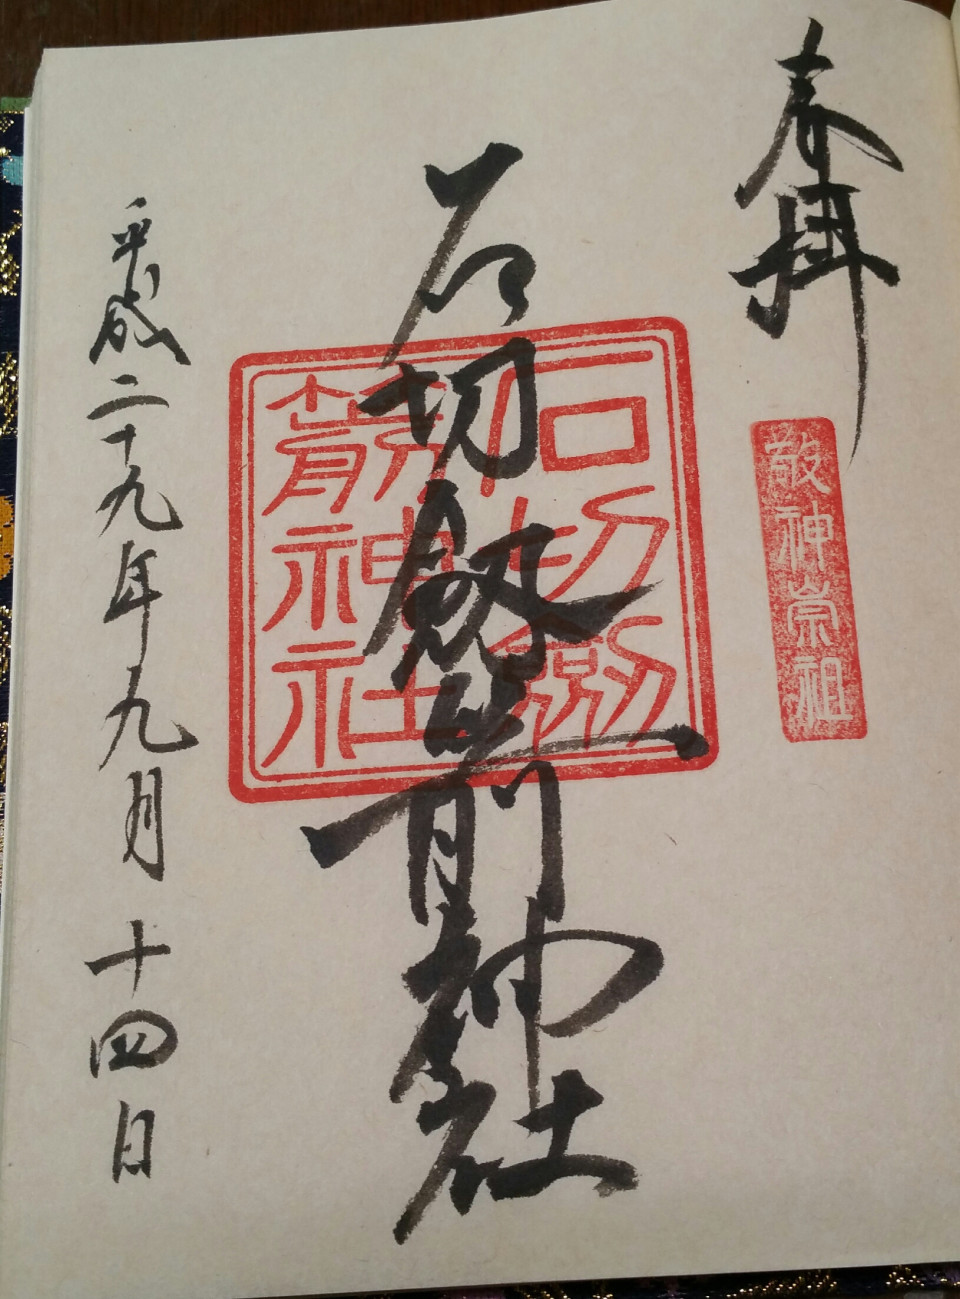 奉拝
敬神崇祖
石切劔箭神社
石切劔
箭神社
平成二十九年九月十四日